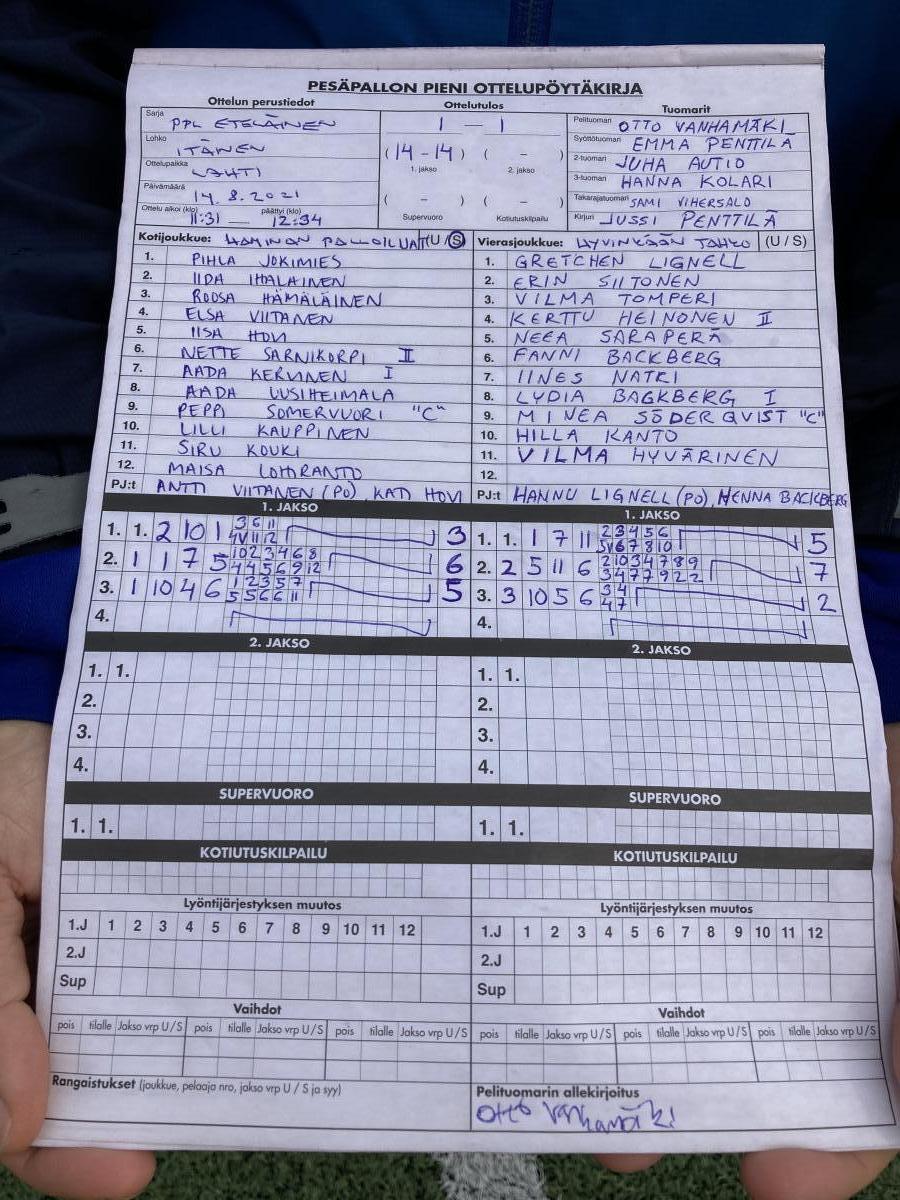 PESÄPALLON PIENI OTTELUPÖYTÄKIRJA
Ottelun perustiedot
Sarja PPL ETELÄINEN
Lohko ITÄNEN
Ottelupaikka LAHTI
Päivämäärä 14.8.2021
Ottelu alkoi (klo) 11:31 päättyi (klo) 12:34
Ottelutulos
1 – 1
(14 – 14) ( – )
1. jakso 2. jakso
( – ) ( – )
Supervuoro Kotiutuskilpailu
Tuomarit
Pelituomari OTTO VANHAMÄKI
Syöttötuomari EMMA PENTTILÄ
2-tuomari JUHA AUTIO
3-tuomari HANNA KOLARI
Takarajatuomari SAMI VIHERSALO
Kirjuri JUSSI PENTTILÄ
Kotijoukkue: HAMINAN PALLOILIJAT (U / S)
1. PIHLA JOKIMIES
2. IIDA IHALAINEN
3. ROOSA HÄMÄLÄINEN
4. ELSA VIITANEN
5. IISA HOVI
6. NETTE SARNIKORPI II
7. AADA KERVINEN I
8. AADA UUSIHEIMALA
9. PEPPI SOMERVUORI "C"
10. LILLI KAUPPINEN
11. SIRU KOUKI
12. MAISA LOHIRANTO
PJ:t ANTTI VIITANEN (PO), KATI HOVI
Vierasjoukkue: HYVINKÄÄN TAHKO (U / S)
1. GRETCHEN LIGNELL
2. ERIN SIITONEN
3. VILMA TOMPERI
4. KERTTU HEINONEN II
5. NEEA SARAPERÄ
6. FANNI BACKBERG
7. IINES NATRI
8. LYDIA BACKBERG I
9. MINEA SÖDERQVIST "C"
10. HILLA KANTO
11. VILMA HYVÄRINEN
12.
PJ:t HANNU LIGNELL (PO), HENNA BACKBERG
1. JAKSO
1. 1. 2 10 1 3 6 11 3
4 V 11 12
2. 1 1 7 5 10 2 3 4 6 8 6
4 4 5 6 9 12
3. 1 10 4 6 1 2 3 5 7 5
5 5 6 6 11
4.
1. JAKSO
1. 1. 1 7 11 2 3 4 5 6 5
5 V 6 7 8 10
2. 2 5 11 6 2 10 3 4 7 8 9 7
3 4 7 7 9 2 2
3. 3 10 5 6 3 4 2
4 7
4.
2. JAKSO
1. 1.
2.
3.
4.
2. JAKSO
1. 1.
2.
3.
4.
SUPERVUORO
1. 1.
SUPERVUORO
1. 1.
KOTIUTUSKILPAILU
KOTIUTUSKILPAILU
Lyöntijärjestyksen muutos
1.J 1 2 3 4 5 6 7 8 9 10 11 12
2.J
Sup
Lyöntijärjestyksen muutos
1.J 1 2 3 4 5 6 7 8 9 10 11 12
2.J
Sup
Vaihdot
pois tilalle Jakso vrp U / S pois tilalle Jakso vrp U / S pois tilalle Jakso vrp U / S
Vaihdot
pois tilalle Jakso vrp U / S pois tilalle Jakso vrp U / S pois tilalle Jakso vrp U / S
Rangaistukset (joukkue, pelaaja nro, jakso vrp U / S ja syy)
Pelituomarin allekirjoitus
Otto Vanhamäki